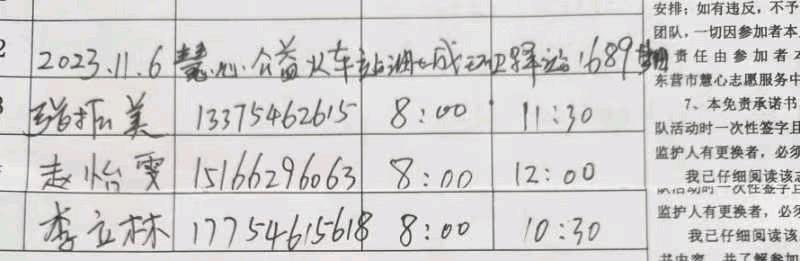 2 2023.11.6 慧心公益火车站 1689期
振美 13375462615 8:00 11:30
赵怡雯 15166296063 8:00 12:00
李立林 17754615618 8:00 10:30
安排；如有违反，不予
团队，一切因参加者本
责任由参加者本
东营市慧心志愿服务中
7、本免责承诺书
队活动时一次性签字且
监护人有更换者，必须
我已仔细阅读该志
队活动时一次性签字且
监护人有更换者，必须
我已仔细阅读该
书内容，并了解参加